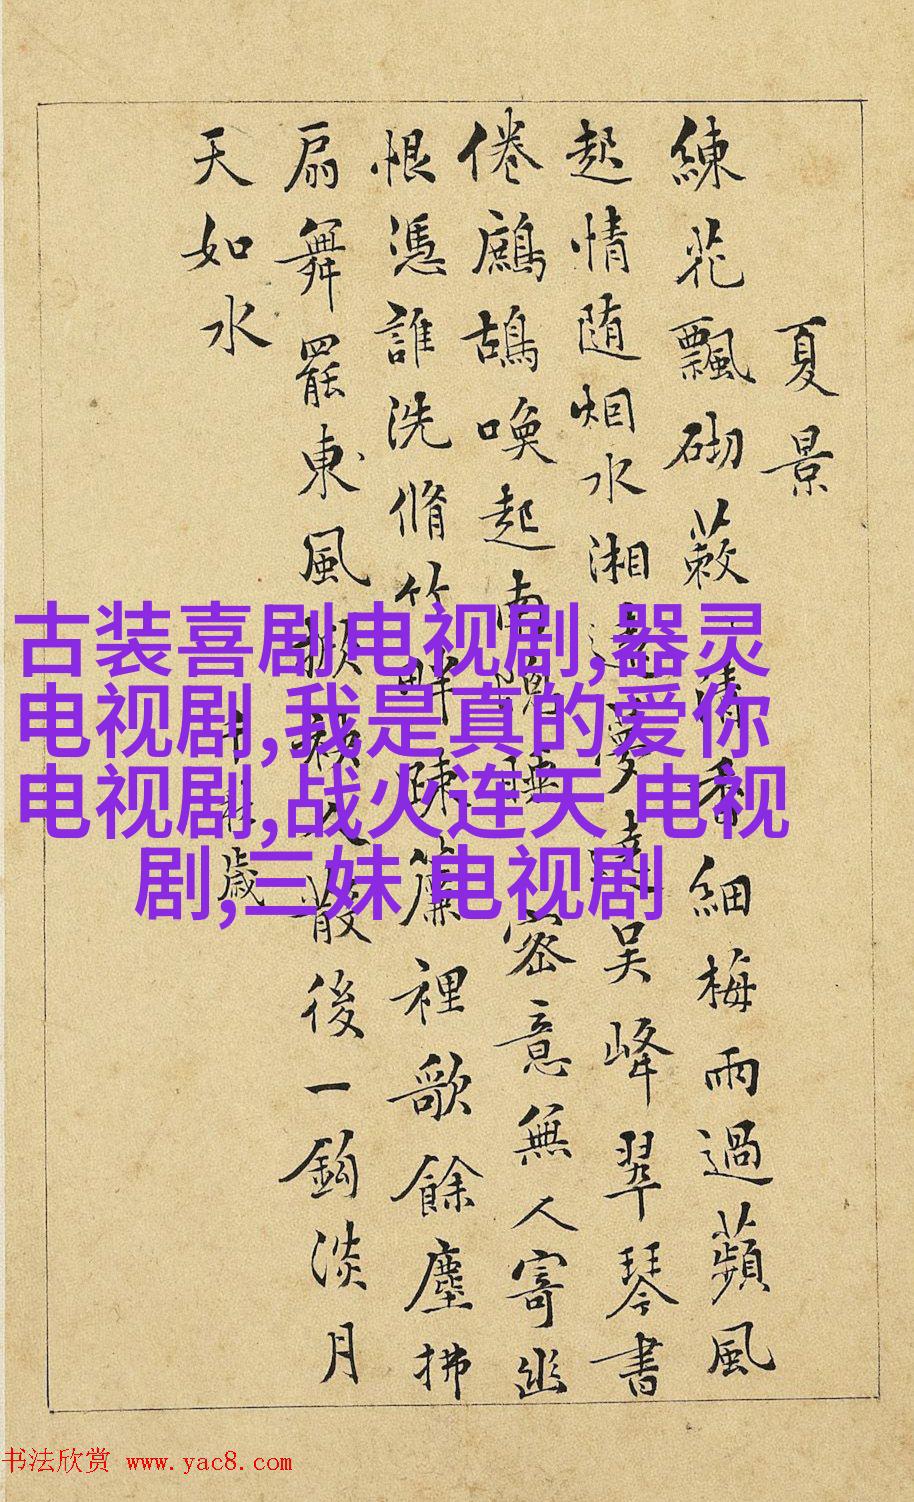 夏景
練花飄砌蔌清香細梅雨過蘋風
起情随烟水湘遠夢遶吳峰翠琴書
倦鷓鴣喚起南睡密意無人寄幽
恨憑誰洗脩竹畔疎簾裡歌餘塵拂
扇舞罷東風人散後一鉤淡月
天如水
千秋歲
古装喜剧电视剧,器灵
电视剧,我是真的爱你
电视剧,战火连天 电视
剧,三妹 电视剧
书法欣赏 www.yac8.com